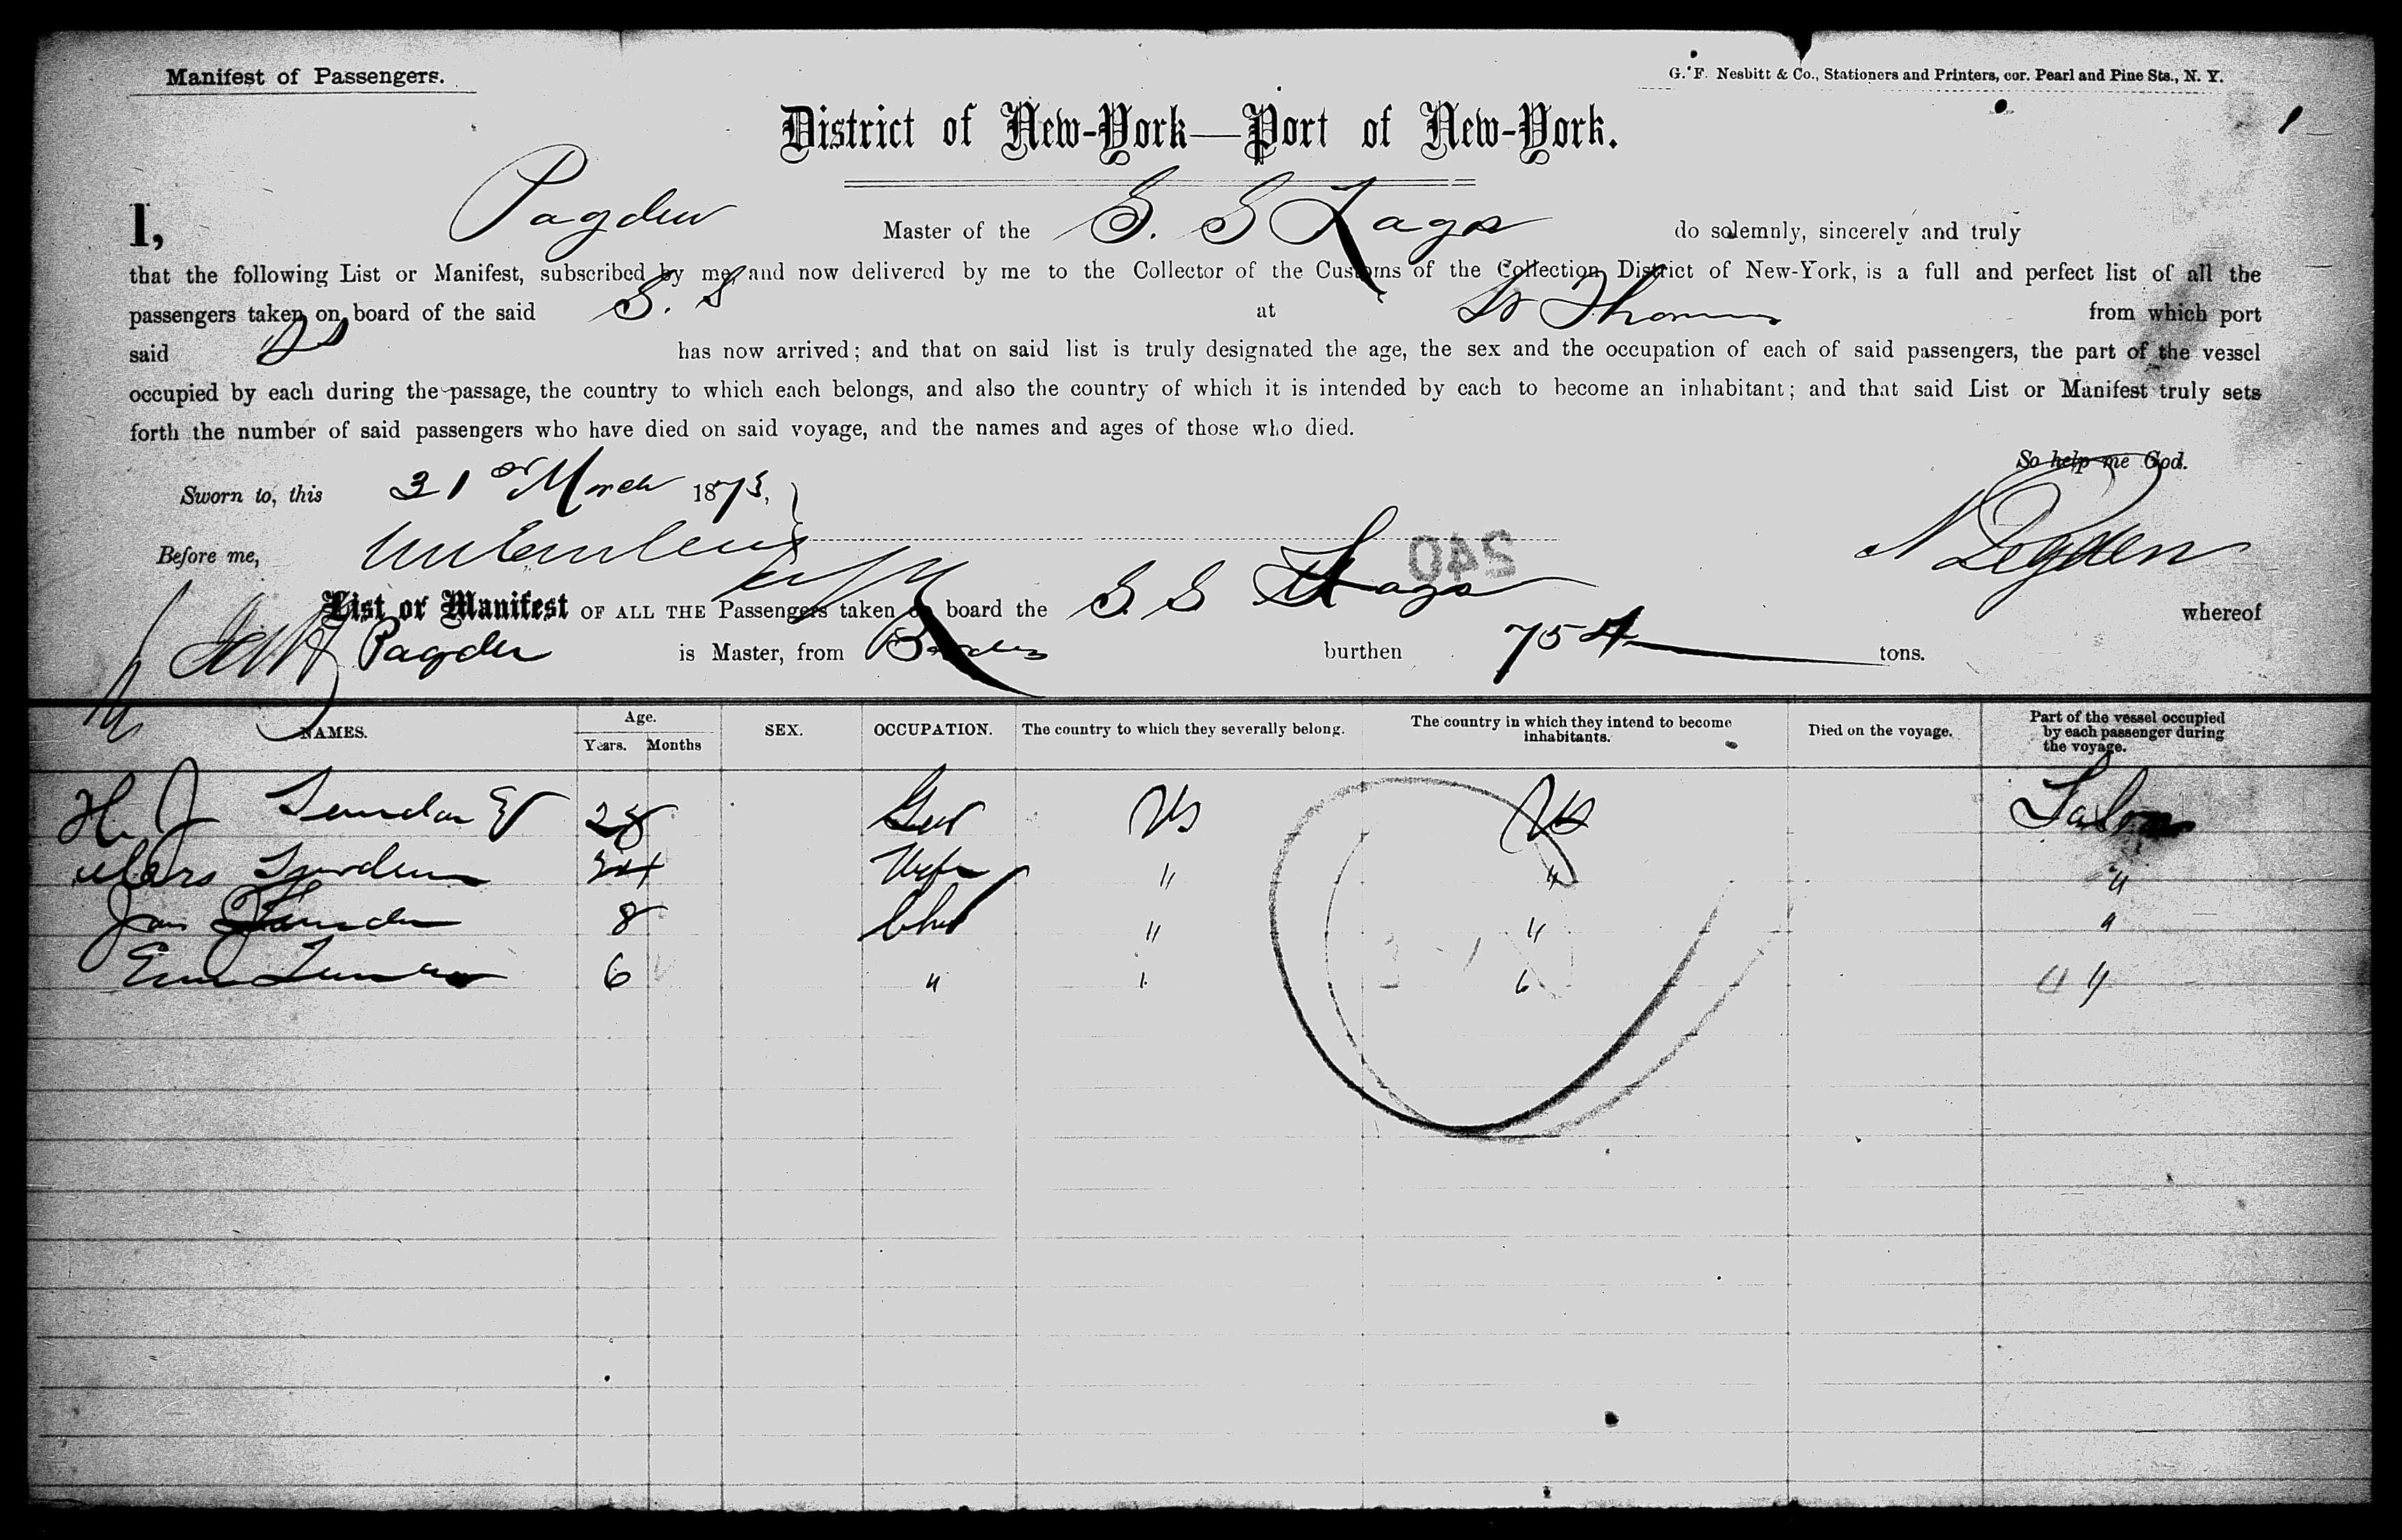 Manifest of Passengers.
G. F. Nesbitt & Co., Stationers and Printers, cor. Pearl and Pine Sts., N. Y.
1
District of New-York—Port of New-York.
I, Pagden Master of the S. S Lago do solemnly, sincerely and truly
that the following List or Manifest, subscribed by me, and now delivered by me to the Collector of the Customs of the Collection District of New-York, is a full and perfect list of all the
passengers taken on board of the said S. S at St Thomas from which port
said SS has now arrived; and that on said list is truly designated the age, the sex and the occupation of each of said passengers, the part of the vessel
occupied by each during the passage, the country to which each belongs, and also the country of which it is intended by each to become an inhabitant; and that said List or Manifest truly sets
forth the number of said passengers who have died on said voyage, and the names and ages of those who died.
So help me God.
Sworn to, this 31st March 1873,
Before me,
240
N Pagden
List or Manifest OF ALL THE Passengers taken on board the S. S Lago whereof
Pagden is Master, from burthen 754 tons.
NAMES. Age. Years. Months SEX. OCCUPATION. The country to which they severally belong. The country in which they intend to become inhabitants. Died on the voyage. Part of the vessel occupied by each passenger during the voyage.
H. J 28 Gent US US Salon
Mrs Wife " " "
8 Child " " "
6 " " " "